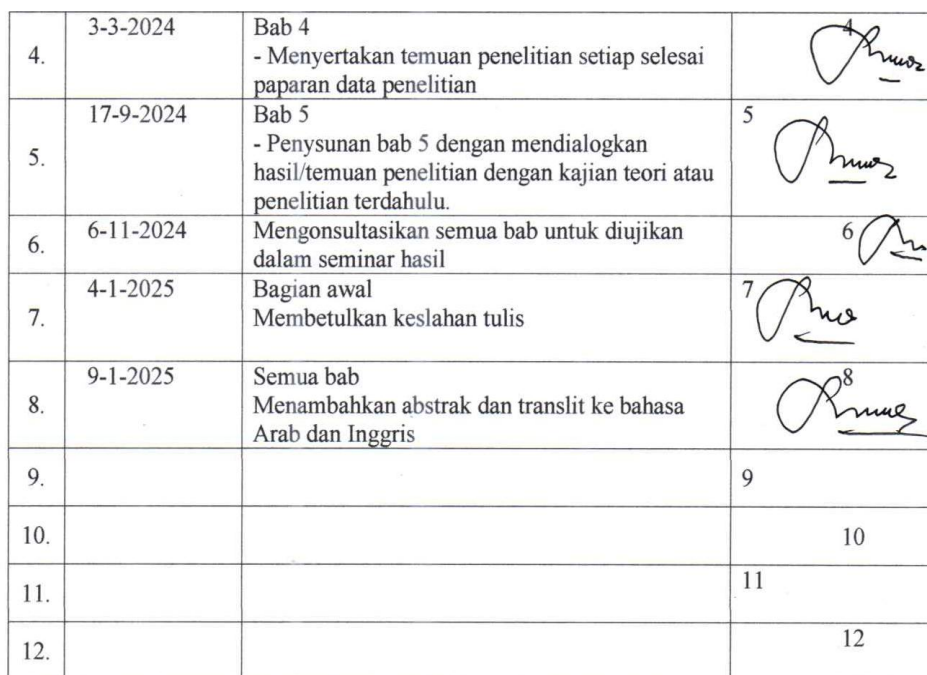 4. 3-3-2024 Bab 4 4
- Menyertakan temuan penelitian setiap selesai
paparan data penelitian
5. 17-9-2024 Bab 5 5
- Penysunan bab 5 dengan mendialogkan
hasil/temuan penelitian dengan kajian teori atau
penelitian terdahulu.
6. 6-11-2024 Mengonsultasikan semua bab untuk diujikan 6
dalam seminar hasil
7. 4-1-2025 Bagian awal 7
Membetulkan keslahan tulis
8. 9-1-2025 Semua bab 8
Menambahkan abstrak dan translit ke bahasa
Arab dan Inggris
9. 9
10. 10
11. 11
12. 12